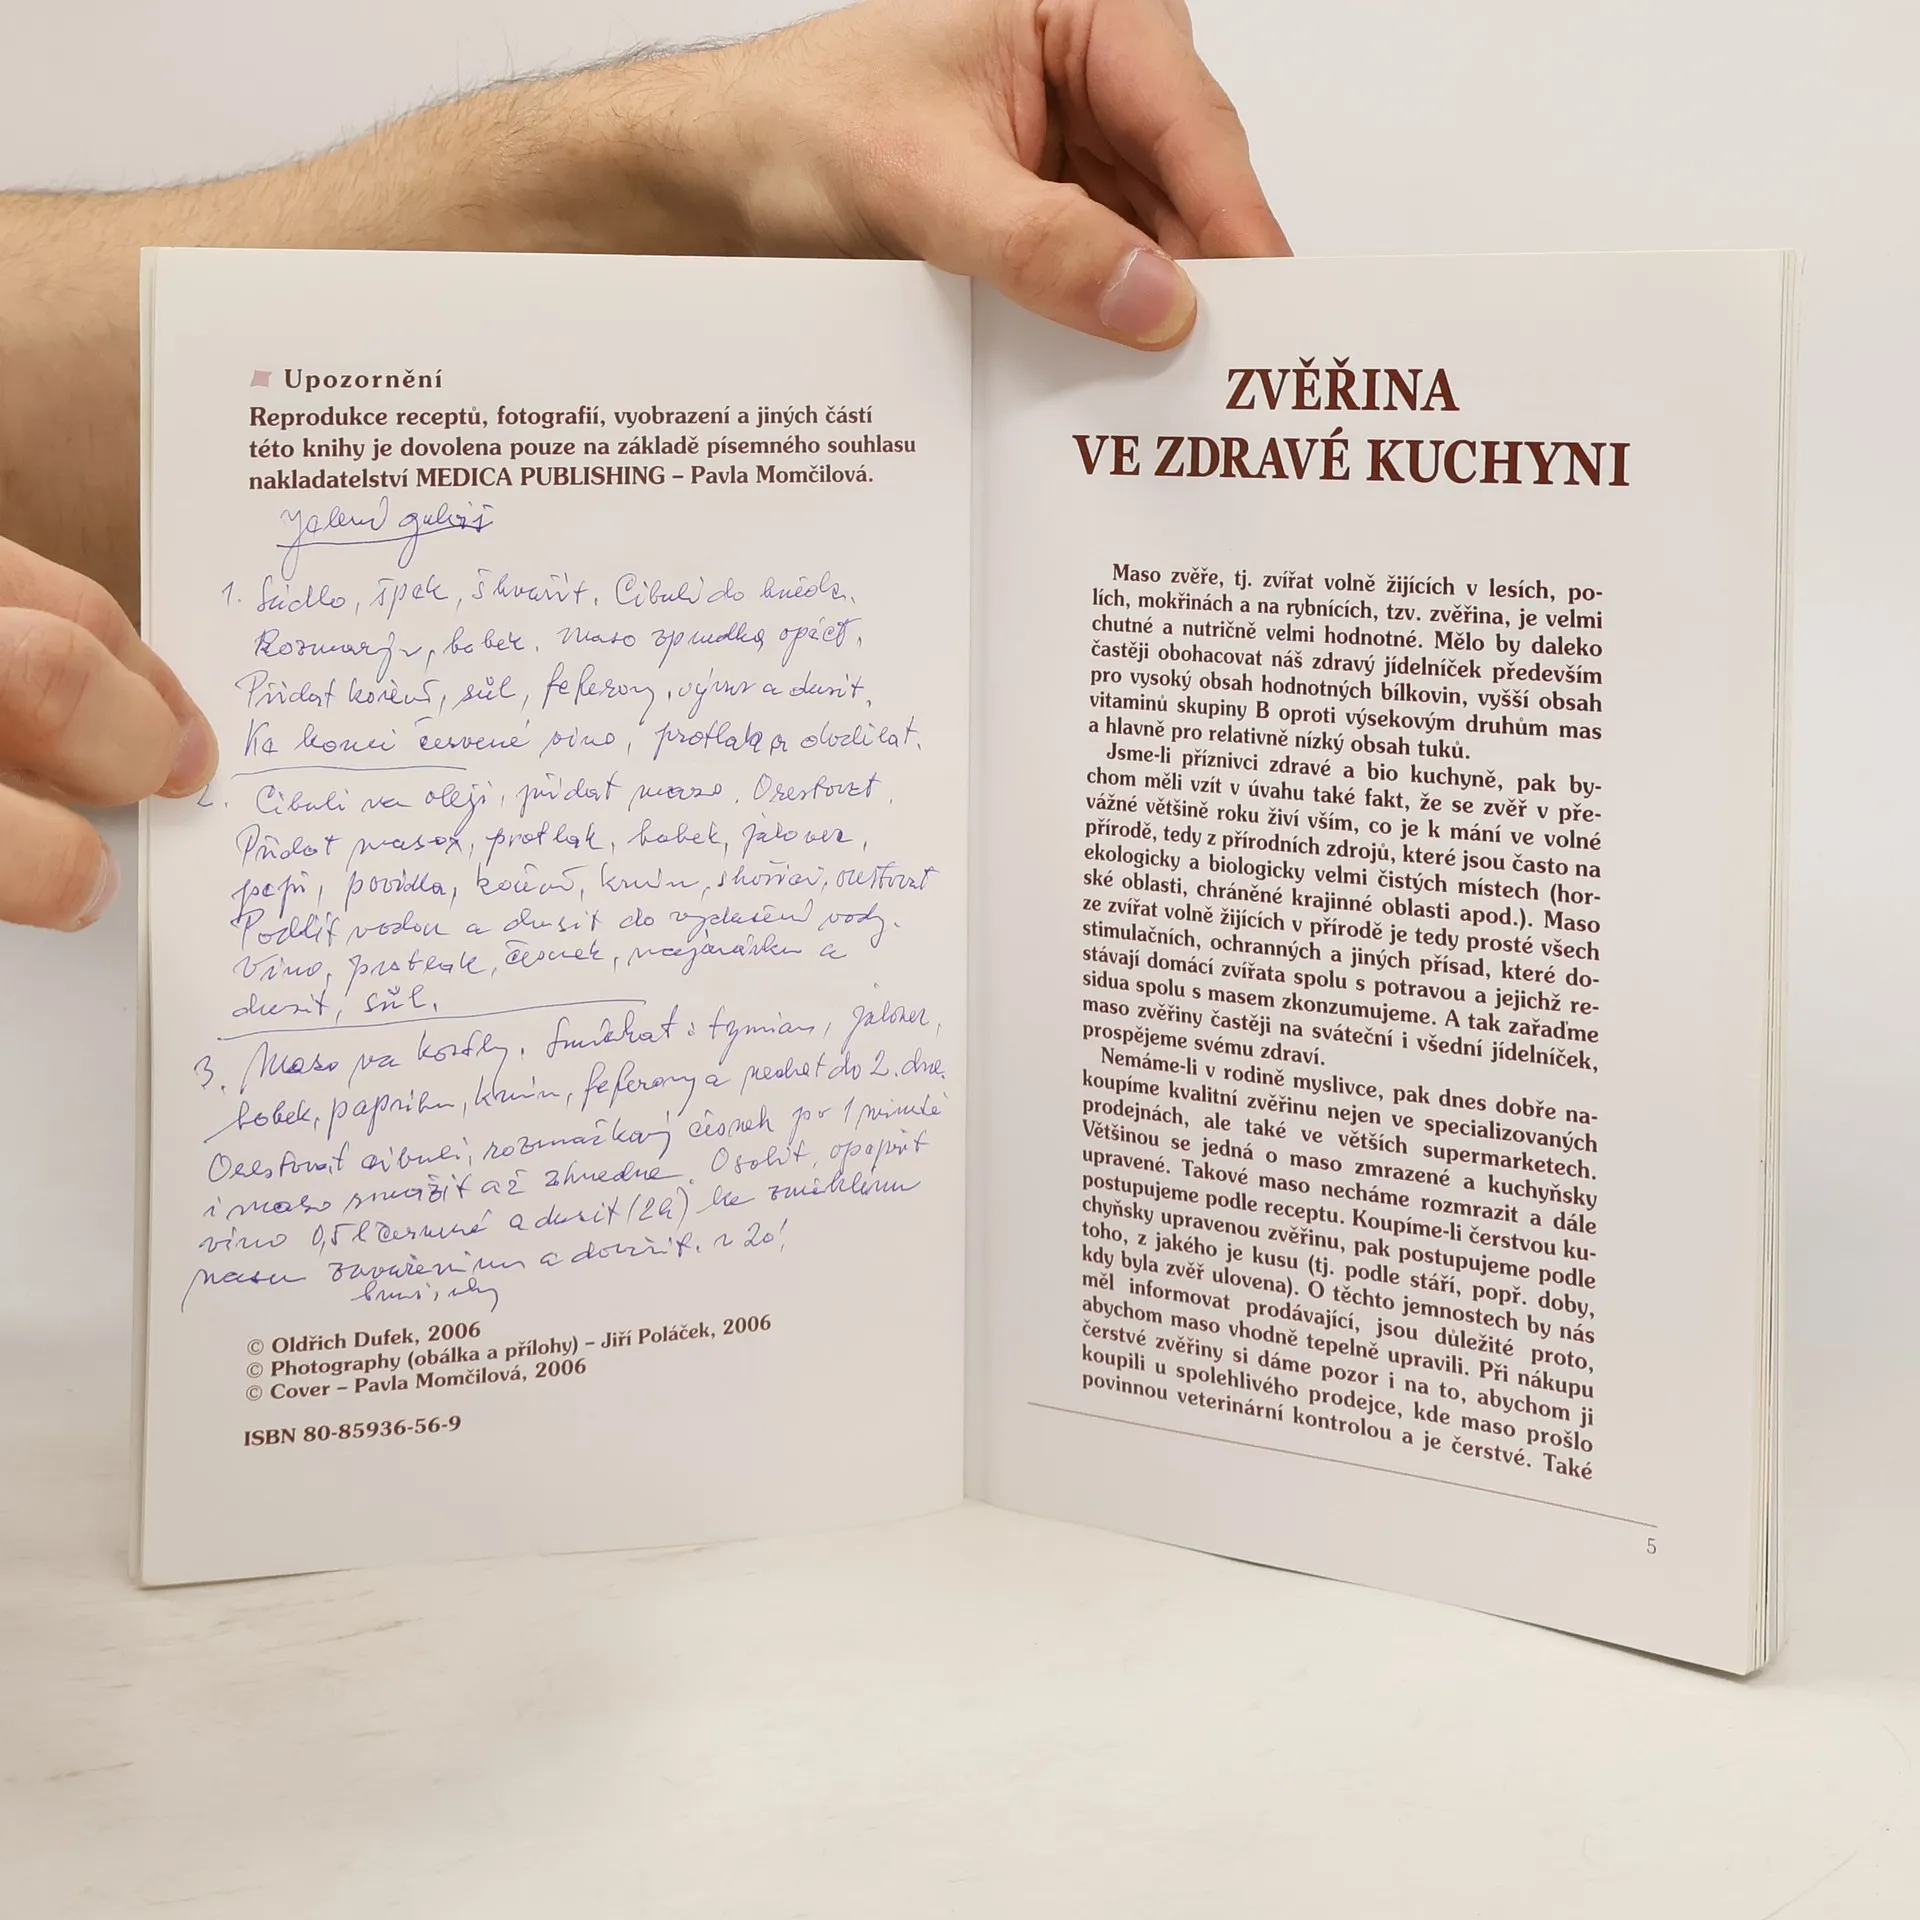 Upozornění
Reprodukce receptů, fotografií, vyobrazení a jiných částí
této knihy je dovolena pouze na základě písemného souhlasu
nakladatelství MEDICA PUBLISHING – Pavla Momčilová.
guláš
1. Sádlo, špek, škvařit. Cibuli do hněda.
bobek. maso zprudka opéct.
Přidat koření, sůl, feferony, vývar a dusit.
Ke konci červené víno, protlak a dodělat.
2. Cibuli na oleji, přidat maso. Orestovat.
Přidat protlak, bobek, jalovec,
pepř, povidla, koření, kmín, skořici, orestovat
Podlít vodou a dusit do vydušení vody.
Víno, protlak, česnek, majoránku a
dusit, sůl.
3. Maso na kostky. Smíchat: tymian, jalovec,
bobek, papriku, kmín, feferony a nechat do 2. dne.
Orestovat cibuli, rozmačkaný česnek po 1 minutě
i maso smažit až zhnedne. Osolit, opepřit
víno 0,5 l červené a dusit (2h) ke změknutí
masa a dovařit. 20!
© Oldřich Dufek, 2006
© Photography (obálka a přílohy) – Jiří Poláček, 2006
© Cover – Pavla Momčilová, 2006
ISBN 80-85936-56-9
ZVĚŘINA
VE ZDRAVÉ KUCHYNI
Maso zvěře, tj. zvířat volně žijících v lesích, po-
lích, mokřinách a na rybnících, tzv. zvěřina, je velmi
chutné a nutričně velmi hodnotné. Mělo by daleko
častěji obohacovat náš zdravý jídelníček především
pro vysoký obsah hodnotných bílkovin, vyšší obsah
vitaminů skupiny B oproti výsekovým druhům mas
a hlavně pro relativně nízký obsah tuků.
Jsme-li příznivci zdravé a bio kuchyně, pak by-
chom měli vzít v úvahu také fakt, že se zvěř v pře-
vážné většině roku živí vším, co je k mání ve volné
přírodě, tedy z přírodních zdrojů, které jsou často na
ekologicky a biologicky velmi čistých místech (hor-
ské oblasti, chráněné krajinné oblasti apod.). Maso
ze zvířat volně žijících v přírodě je tedy prosté všech
stimulačních, ochranných a jiných přísad, které do-
stávají domácí zvířata spolu s potravou a jejichž re-
sidua spolu s masem zkonzumujeme. A tak zařaďme
maso zvěřiny častěji na sváteční i všední jídelníček,
prospějeme svému zdraví.
Nemáme-li v rodině myslivce, pak dnes dobře na-
koupíme kvalitní zvěřinu nejen ve specializovaných
prodejnách, ale také ve větších supermarketech.
Většinou se jedná o maso zmrazené a kuchyňsky
upravené. Takové maso necháme rozmrazit a dále
postupujeme podle receptu. Koupíme-li čerstvou ku-
chyňsky upravenou zvěřinu, pak postupujeme podle
toho, z jakého je kusu (tj. podle stáří, popř. doby,
kdy byla zvěř ulovena). O těchto jemnostech by nás
měl informovat prodávající, jsou důležité proto,
abychom maso vhodně tepelně upravili. Při nákupu
čerstvé zvěřiny si dáme pozor i na to, abychom ji
koupili u spolehlivého prodejce, kde maso prošlo
povinnou veterinární kontrolou a je čerstvé. Také
5